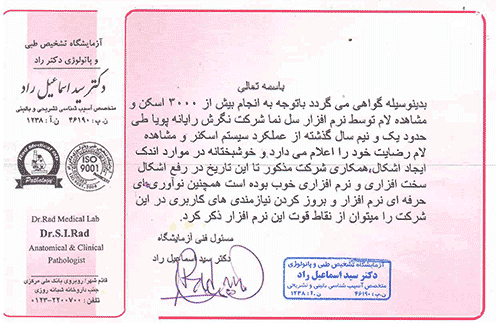 آزمایشگاه تشخیص طبی
و پاتولوژی دکتر راد
دکتر سید اسماعیل راد
متخصص آسیب شناسی تشریحی و بالینی
ن.پ: ۴۶۱۹۰ ن.آ: ۱۲۳۸
Rad Medical Lab
Pathologist
ISO
9001
Dr.Rad Medical Lab
Dr.S.I.Rad
Anatomical & Clinical
Pathologist
قائم شهر: روبروی بانک ملی مرکزی
جنب داروخانه شبانه روزی
تلفن: ۲۲۰۰۷۰۰-۰۱۲۳
باسمه تعالی
بدینوسیله گواهی می گردد باتوجه به انجام بیش از ۳۰۰۰ اسکن و
مشاهده لام توسط نرم افزار سل نما شرکت نگرش رایانه پویا طی
حدود یک و نیم سال گذشته از عملکرد سیستم اسکنر و مشاهده
لام رضایت خود را اعلام می دارد و خوشبختانه در موارد اندک
ایجاد اشکال,همکاری شرکت مذکور تا این تاریخ در رفع اشکال
سخت افزاری و نرم افزاری خوب بوده است همچنین نوآوری های
حرفه ای نرم افزار و بروز کردن نیازمندی های کاربری در این
شرکت را میتوان از نقاط قوت این نرم افزار ذکر کرد.
مسئول فنی آزمایشگاه
دکتر سید اسماعیل راد
آزمایشگاه تشخیص طبی و پاتولوژی
دکتر سید اسماعیل راد
متخصص آسیب شناسی بالینی و تشریحی
ن.پ: ۴۶۱۹۰ ن.آ: ۱۲۳۸